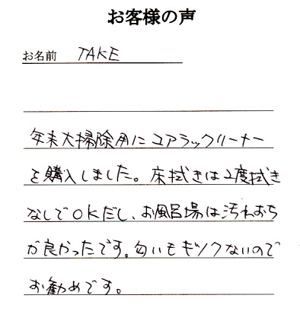 お客様の声
お名前 TAKE
年末大掃除用にユアラックリーナー
を購入しました。床拭きは2度拭き
なしでOKだし、お風呂場は汚れおち
が良かったです。匂いもキツクないので
お勧めです。